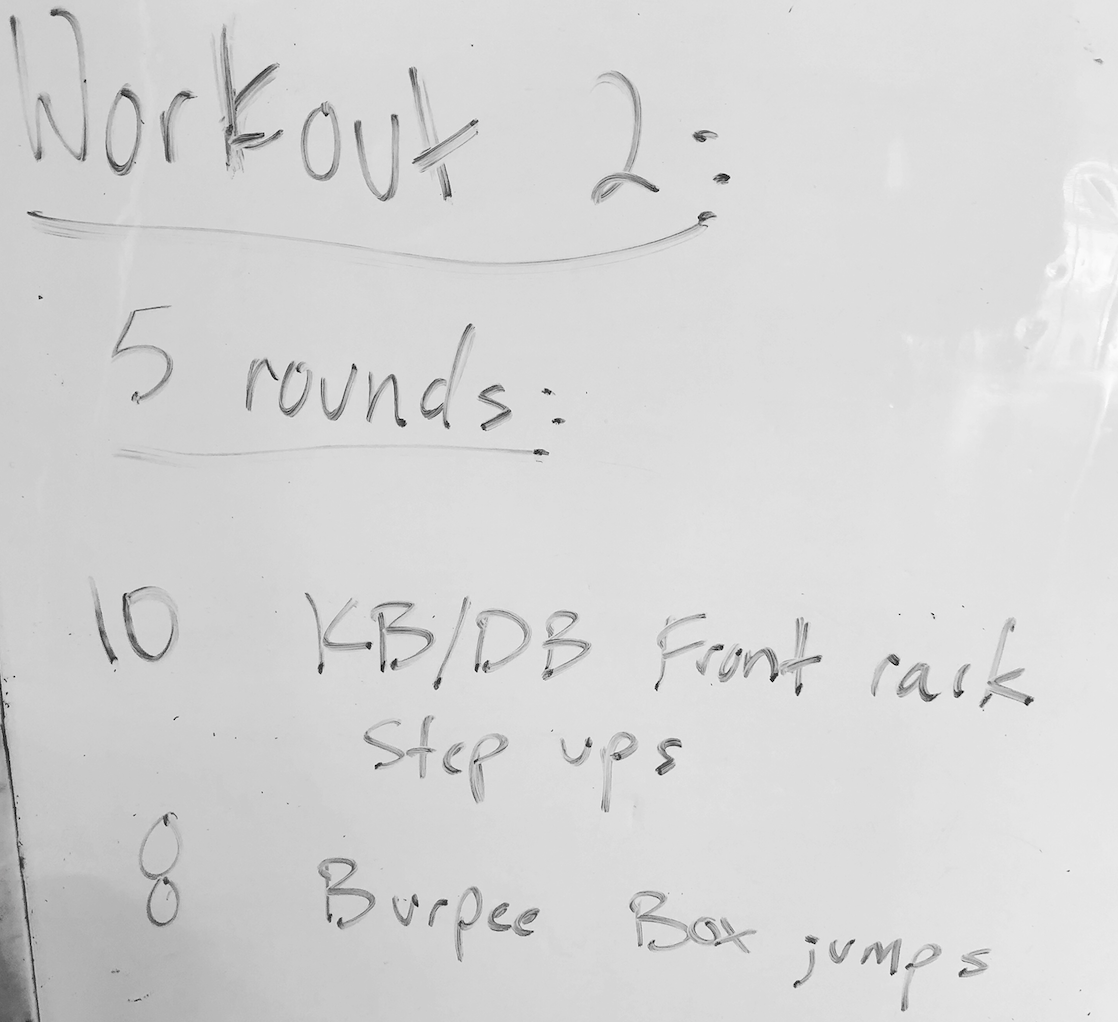 Workout 2:
5 rounds:
10 KB/DB Front rack
Step ups
8 Burpee Box jumps